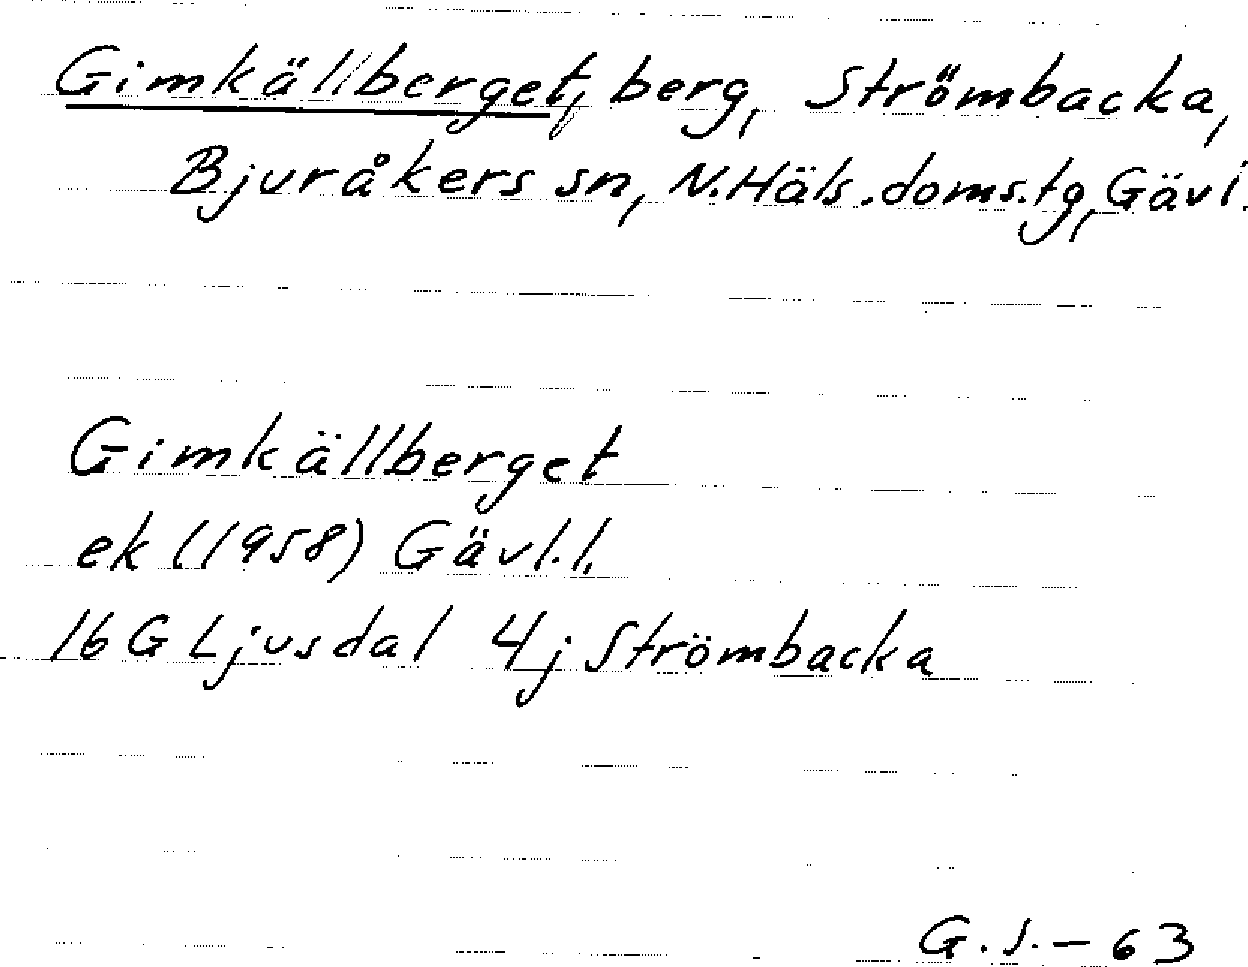 Gimkällberget, berg, Strömbacka,
Bjuråkers sn, N.Häls.doms.tg, Gävl.
Gimkällberget
ek (1958) Gävl.l.
16 G Ljusdal 4j Strömbacka
G.S.-63